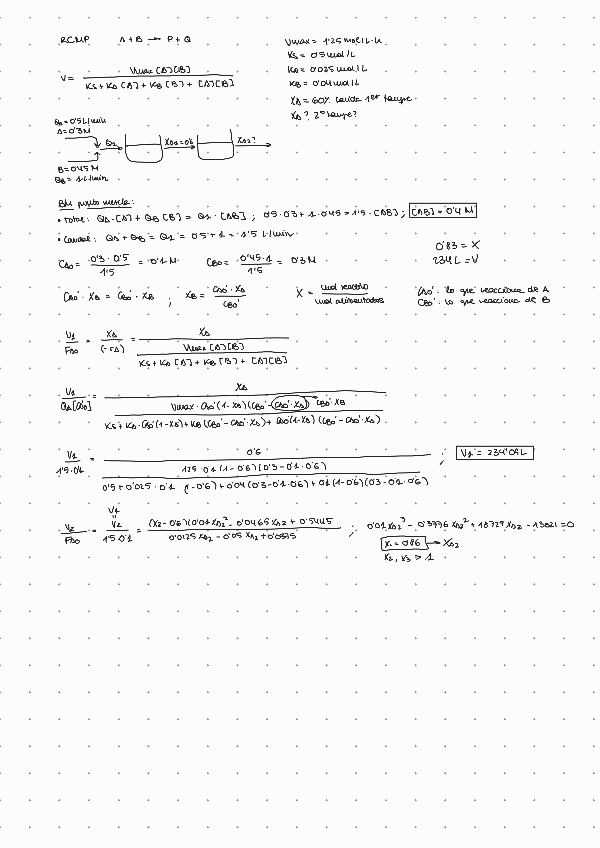 RCMP A + B → P + Q
Vmax = 1'25 mol/L·h
Ks = 0'5 mol/L
KA = 0'025 mol/L
KB = 0'04 mol/L
XA = 60% 1er tanque
XA? 2º tanque?
V = Vmax [A][B] / Ks + KA [A] + KB [B] + [A][B]
QA = 0'5 L/min
A = 0'3 M
Q1
XA1 = 0'6
XA2?
B = 0'45 M
QB = 1 L/min
BM punto mezcla:
• Total: QA · [A] + QB [B] = Q1 · [AB] ; 0'5 · 0'3 + 1 · 0'45 = 1'5 · [AB] ; [AB] = 0'4 M
• Caudal: QA + QB = Q1 = 0'5 + 1 = 1'5 L/min
CA0' = 0'3 · 0'5 / 1'5 = 0'1 M CB0' = 0'45 · 1 / 1'5 = 0'3 M
0'83 = X
234 L = V
CA0' · XA = CB0' · XB ; XB = CA0' · XA / CB0' X = mol reacción / mol alimentados
CA0': lo que reacciona de A
CB0': lo que reacciona de B
V1 / FA0 = XA / (-rA) = XA / Vmax [A][B] / Ks + KA [A] + KB [B] + [A][B]
V1 / Q1[A0'] = XA / Vmax · CA0' (1-XA)(CB0' - CA0' · XA) / Ks + KA · CA0' (1-XA) + KB (CB0' - CA0' · XA) + CA0' (1-XA) (CB0' - CA0' · XA)
CB0' · XB
V1 / 1'5 · 0'1 = 0'6 / 1'25 · 0'1 (1-0'6)(0'3-0'1 · 0'6) / 0'5 + 0'025 · 0'1 (1-0'6) + 0'04 (0'3-0'1 · 0'6) + 0'1 (1-0'6)(0'3-0'1 · 0'6) ; V1 = 234'09 L
V1
V2 / FA0 = V2 / 1'5 · 0'1 = (X2-0'6)(0'01 XA2² - 0'0465 XA2 + 0'5445) / 0'0125 XA2 - 0'05 XA2 + 0'0375 ; 0'01 XA2³ - XA2² + XA2 - = 0
X1 = 0'86 → XA2
X2, X3 > 1